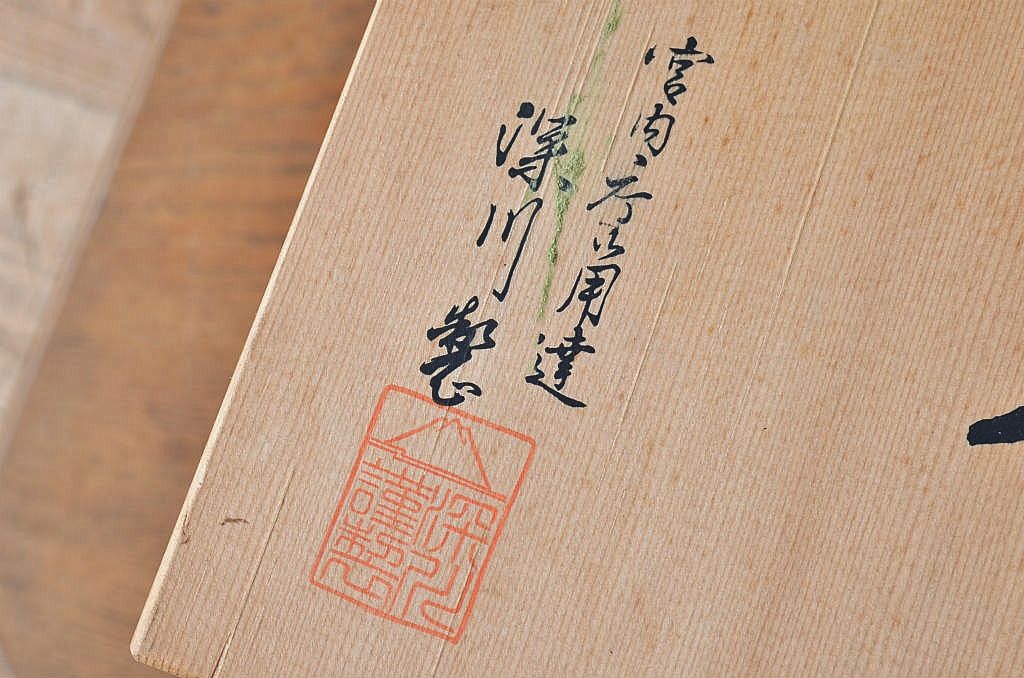 宮内庁御用達
深川製
深川
謹製